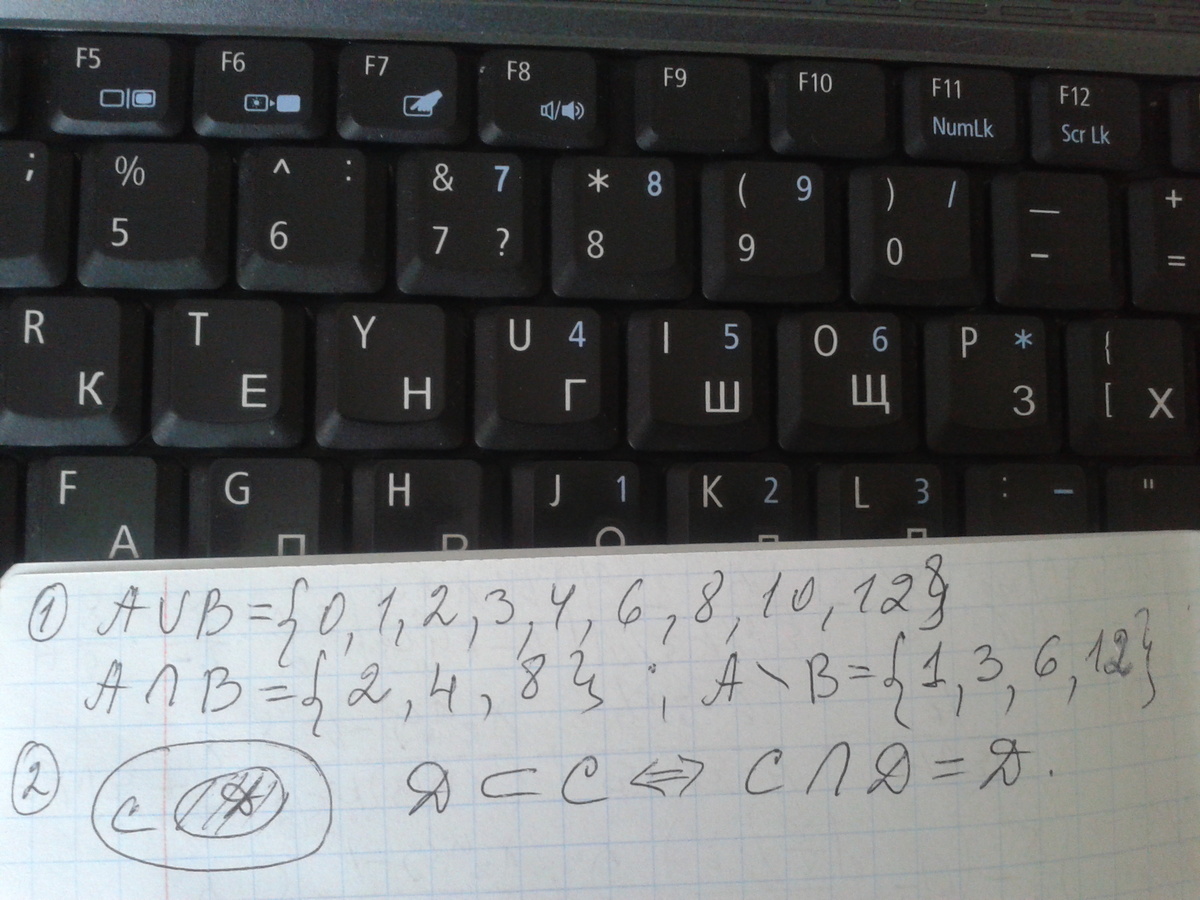 F5 F6 F7 F8 F9 F10 F11 F12
NumLk Scr Lk
; % ^ : & 7 * 8 ( 9 ) / — +
5 6 7 ? 8 9 0 - =
R T Y U 4 I 5 O 6 P * {
К Е Н Г Ш Щ З [ Х
F G H J 1 K 2 L 3 : – "
А П
① A∪B={0,1,2,3,4,6,8,10,12}
A∩B={2,4,8}; A\B={1,3,6,12}
② C D D⊂C⇔C∩D=D.